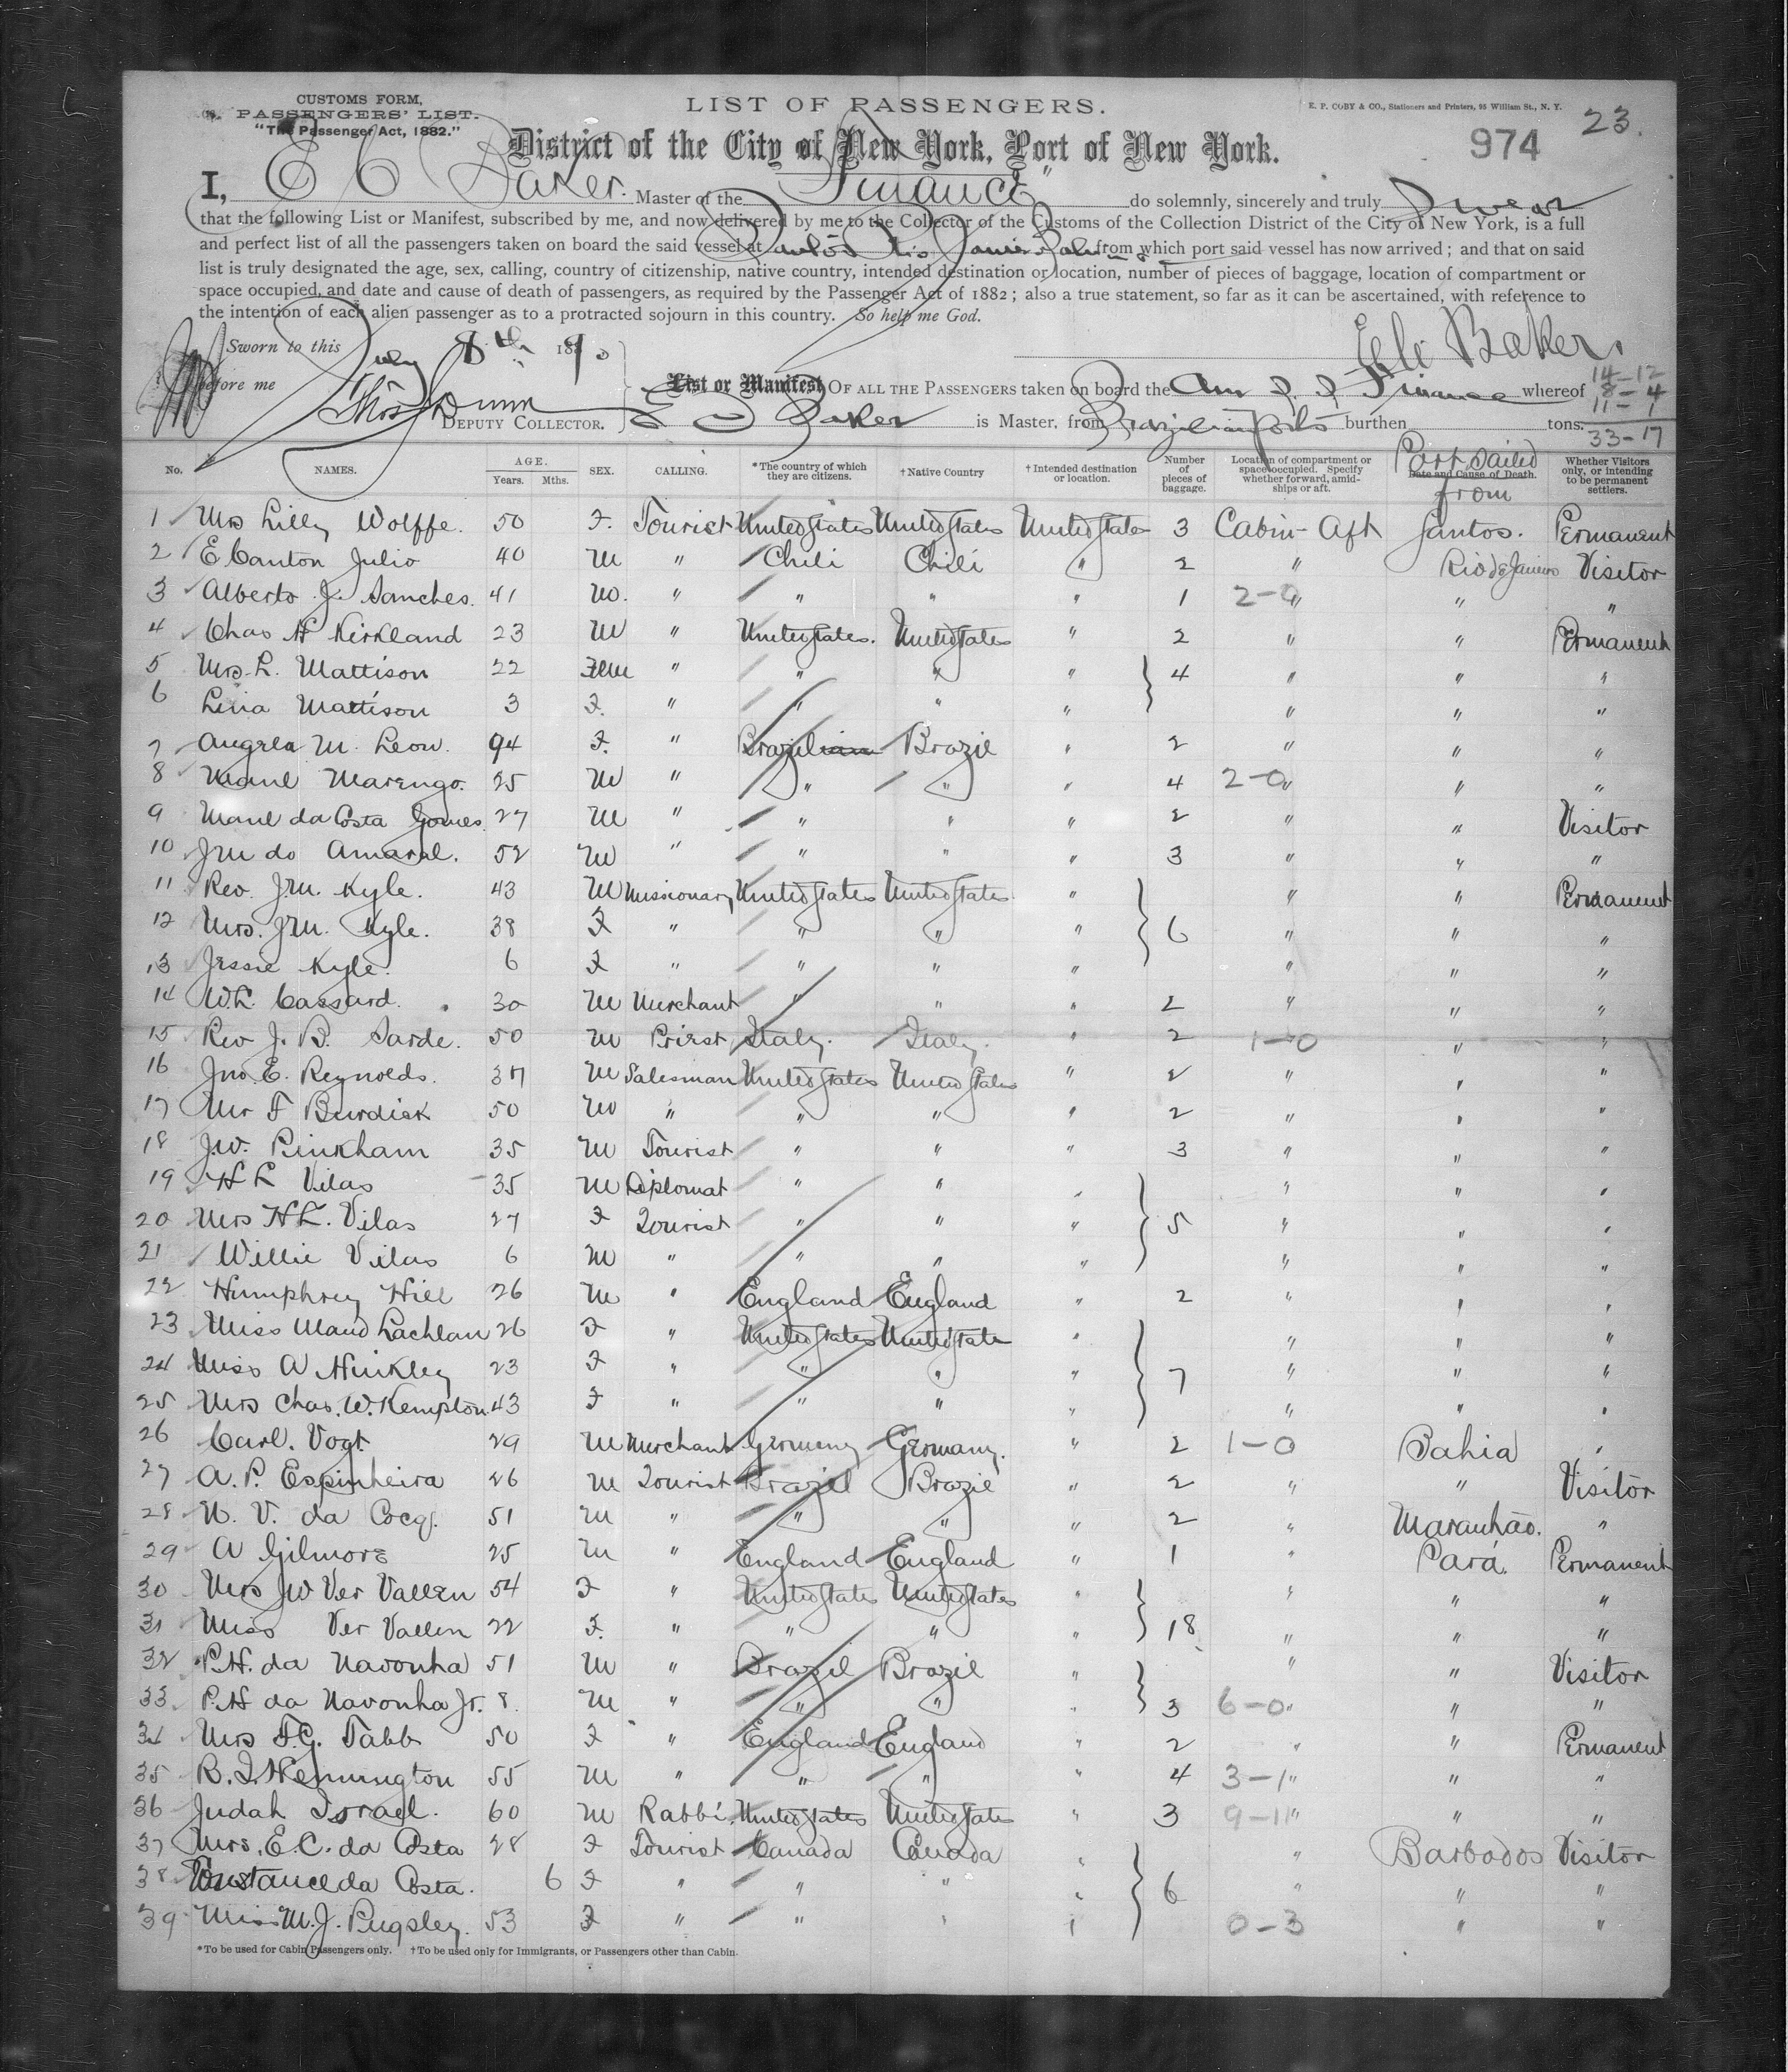 CUSTOMS FORM,
PASSENGERS' LIST.
"The Passenger Act, 1882."
LIST OF PASSENGERS.
E. P. COBY & CO., Stationers and Printers, 95 William St., N. Y.
23.
974
District of the City of New York, Port of New York.
I, E C Baker. Master of the "Finance" do solemnly, sincerely and truly Swear
that the following List or Manifest, subscribed by me, and now delivered by me to the Collector of the Customs of the Collection District of the City of New York, is a full
and perfect list of all the passengers taken on board the said vessel at Santos Rio Janeiro from which port said vessel has now arrived; and that on said
list is truly designated the age, sex, calling, country of citizenship, native country, intended destination or location, number of pieces of baggage, location of compartment or
space occupied, and date and cause of death of passengers, as required by the Passenger Act of 1882; also a true statement, so far as it can be ascertained, with reference to
the intention of each alien passenger as to a protracted sojourn in this country. So help me God.
Sworn to this July 8th 1890
E C Baker.
before me Thos Dunn
DEPUTY COLLECTOR.
List or Manifest OF ALL THE PASSENGERS taken on board the Am S. S. Finance whereof
E C Baker is Master, from Brazilian Ports burthen tons.
14-12
8-4
11-1
33-17
No. NAMES. AGE. Years. Mths. SEX. CALLING. *The country of which they are citizens. †Native Country †Intended destination or location. Number of pieces of baggage. Location of compartment or space occupied. Specify whether forward, amidships or aft. Port Sailed from Date and Cause of Death. Whether Visitors only, or intending to be permanent settlers.
1 Mrs Lilly Wolffe. 50 F. Tourist United States United States United States 3 Cabin-Aft Santos. Permanent
2 E Canton Julio 40 M " Chili Chili " 2 " Rio de Janeiro Visitor
3 Alberto J. Sanches. 41 M. " " " " 1 2-0 " " "
4 Chas H Kirkland 23 M " United States. United States " 2 " " Permanent
5 Mrs L. Mattison 22 Fem " " " " 4 " " "
6 Livia Mattison 3 F. " " " " " " "
7 M. Leon. 94 F. " Brazilian Brazil " 2 " " "
8 Manl Marengo. 25 M " " " " 4 2-0 " " "
9 Manl da Costa Gomes. 27 M " " " " 2 " " Visitor
10 J M do Amaral. 52 M " " " " 3 " " "
11 Rev. J. M. Kyle. 43 M Missionary United States United States " " " Permanent
12 Mrs. J M. Kyle. 38 F " " " " 6 " " "
13 Jessie Kyle. 6 F " " " " " " "
14 W. L. Cassard. 30 M Merchant " " " 2 " " "
15 Rev J. B. Sarde. 50 M Priest Italy. Italy. " 2 1-0 " "
16 Jno. E. Reynolds. 37 M Salesman United States United States " 2 " " "
17 Mr F Burdick 50 M " " " " 2 " " "
18 J. W. Pinkham 35 M Tourist " " " 3 " " "
19 H L Vilas 35 M Diplomat " " " " " "
20 Mrs H L. Vilas 27 F Tourist " " " 5 " " "
21 Willie Vilas 6 M " " " " " " "
22 Humphrey Hill 26 M " England England " 2 " " "
23 Miss Maud Lachlan 26 F " United States United State " " " "
24 Miss A Hinkley 23 F " " " " 7 " " "
25 Mrs Chas. W. Kempton 43 F " " " " " " "
26 Carl. Vogt 29 M Merchant Germany Germany. " 2 1-0 Bahia "
27 A. P. Espinheira 26 M Tourist Brazil Brazil " 2 " " Visitor
28 V. da 51 M " " " " 2 " Maranhão. "
29 A Gilmore 25 M " England England " 1 " Pará. Permanent
30 Mrs J W Ver Vallen 54 F " United States United States " " " "
31 Miss Ver Vallen 22 F. " " " " 18 " " "
32 P. H. da Navonha 51 M " Brazil Brazil " " " Visitor
33 P. H da Navonha Jr. 8. M " " " " 3 6-0 " " "
34 Mrs F. G. Tabb 50 F " England England " 2 " " Permanent
35 Hennington 55 M " " " " 4 3-1 " " "
36 Judah Israel. 60 M Rabbi. United States United States " 3 9-11 " " "
37 Mrs. E. C. da Costa 28 F Tourist Canada Canada " " Barbados Visitor
38 Constance da Costa. 6 F " " " " 6 " " "
39 Miss M. J. Pugsley. 53 F " " " " 0-3 " "
*To be used for Cabin Passengers only. †To be used only for Immigrants, or Passengers other than Cabin.